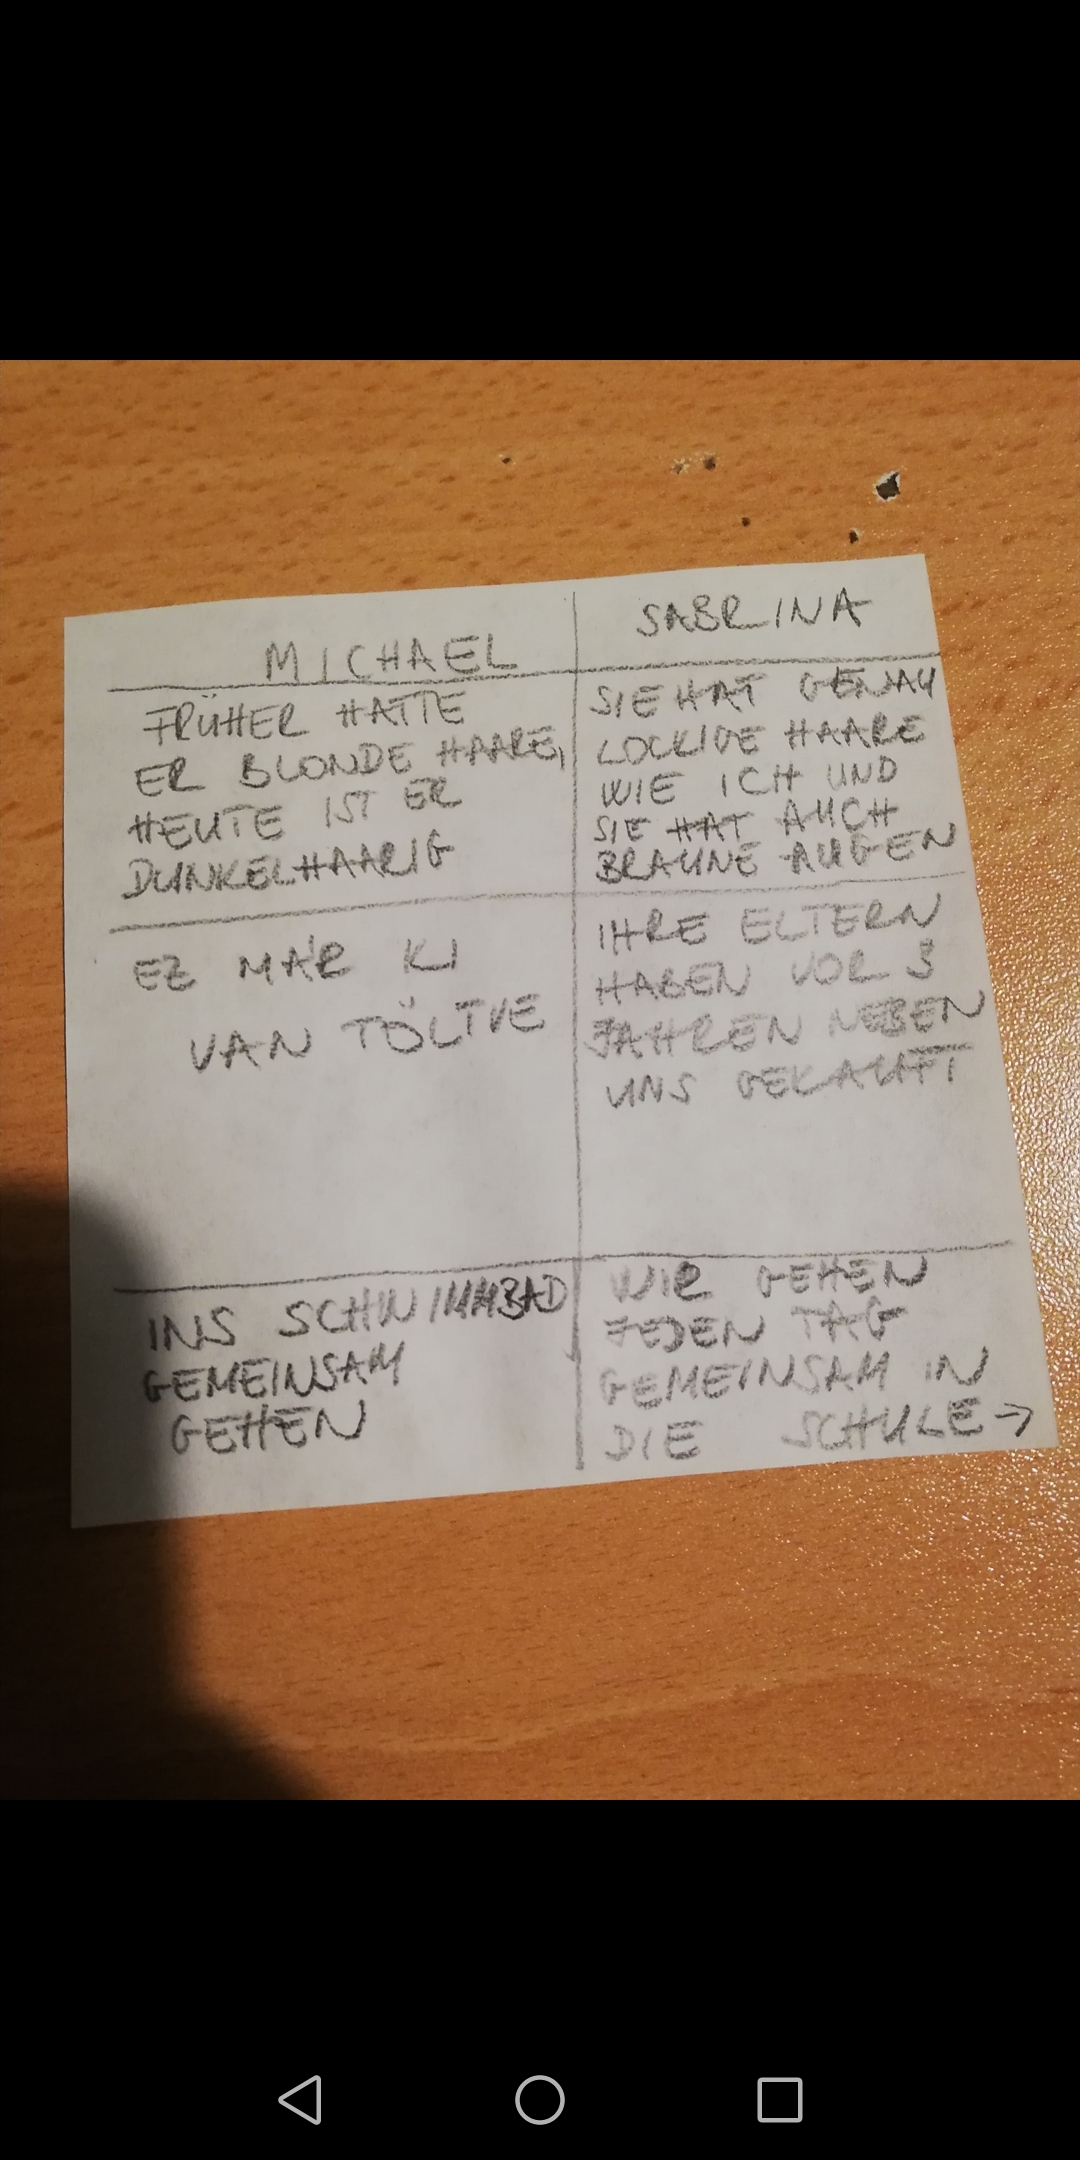 MICHAEL
FRÜHER HATTE
ER BLONDE HAARE,
HEUTE IST ER
DUNKELHAARIG
EZ MÁR KI
VAN TÖLTVE
INS SCHWIMMBAD
GEMEINSAM
GEHEN
SABRINA
SIE HAT GENAU
LOCKIGE HAARE
WIE ICH UND
SIE HAT AUCH
BRAUNE AUGEN
IHRE ELTERN
HABEN VOR 3
JAHREN NEBEN
UNS GEKAUFT
WIR GEHEN
JEDEN TAG
GEMEINSAM IN
DIE SCHULE →